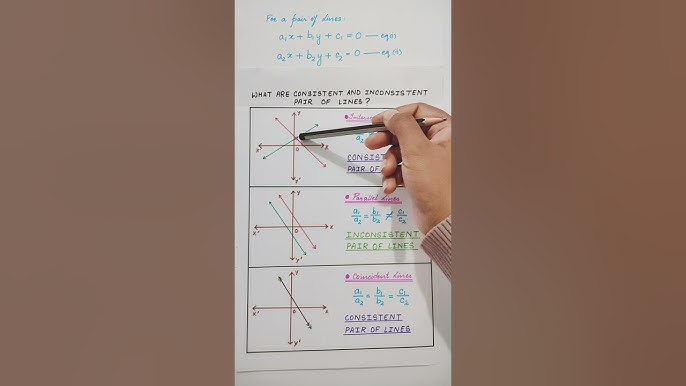 For a pair of lines:
a₁x + b₁y + c₁ = 0 — eq(i)
a₂x + b₂y + c₂ = 0 — eq(ii)
WHAT ARE CONSISTENT AND INCONSISTENT
PAIR OF LINES?
Y
X' O X
Y'
a₂
CONSIS
PAIR OF
Y
• Parallel Lines
a₁/a₂ = b₁/b₂ ≠ c₁/c₂
X' O X
INCONSISTENT
PAIR OF LINES
Y'
Y
• Coincident Lines
a₁/a₂ = b₁/b₂ = c₁/c₂
X' O X
CONSISTENT
PAIR OF LINES
Y'